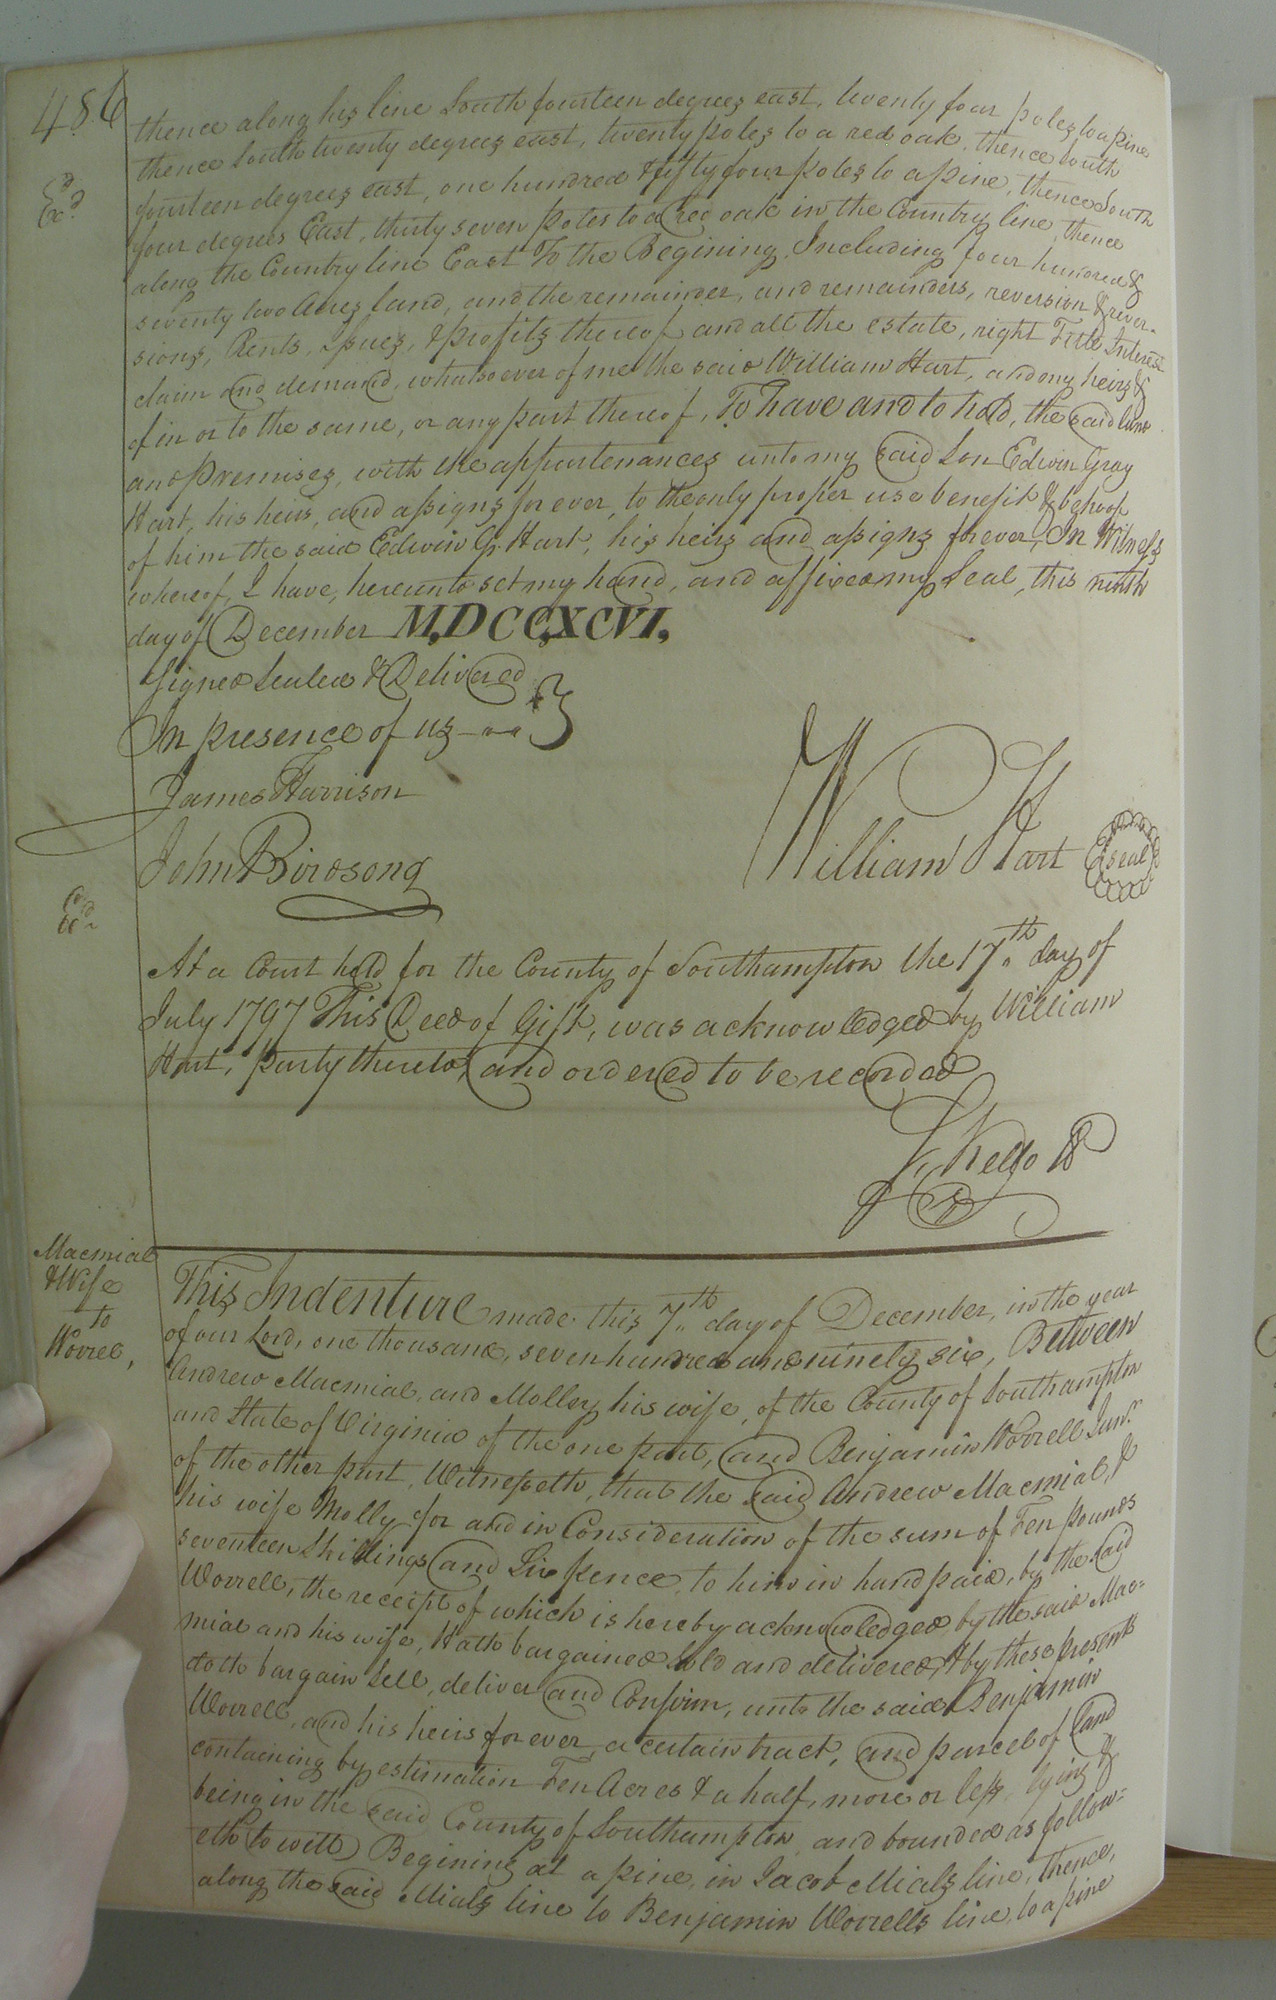 486
thence along his line South fourteen degrees east, twenty four poles to a pine
thence South twenty degrees east, twenty poles to a red oak, thence South
fourteen degrees east, one hundred & fifty four poles to a pine, thence South
four degrees East, thirty seven poles to a red oak in the Country line, thence
along the Country line East To the Begining, Including four hundred &
seventy two Acres land, and the remainder, and remainders, reversion & rever-
sions, Rents, Issues, & profits thereof and all the estate, right Title Interest
claim and demand, whatsoever of me the said William Hart, and my heirs &
of in or to the same, or any part thereof, To have and to hold, the said land
and premises, with the appurtenances unto my said Son Edwin Gray
Hart, his heirs, and assigns for ever, to the only proper use benefit & behoof
of him the said Edwin G. Hart, his heirs and assigns forever, In Witness
whereof, I have, hereunto set my hand, and affixed my Seal, this ninth
day of December M,DCC,XCVI,
Signed Sealed & Delivered
In presence of us
James Harrison
John Birdsong
William Hart seal
Exd.
At a Court held for the County of Southampton the 17th. day of
July 1797 This Deed of Gift, was acknowledged by William
Hart, party thereto, and ordered to be recorded
S, Kello
Macmial
& Wife
to
Worrel,
This Indenture made this 7th. day of December, in the year
of our Lord, one thousand, seven hundred and ninety six, Between
Andrew Macmial, and Molley his wife, of the County of Southampton
and State of Virginia of the one part, and Benjamin Worrell Junr.
of the other part, Witnesseth, that the said Andrew Macmial, &
his wife Molly for and in Consideration of the sum of Ten pounds
seventeen Shillings and Six pence, to him in hand paid, by the said
Worrell, the receipt of which is hereby acknowledged by the said Mac-
mial and his wife, Hath bargained Sold and delivered, & by these presents
doth bargain Sell, deliver and Confirm, unto the said Benjamin
Worrell, and his heirs forever, a certain tract, and parcel of land
containing by estimation Ten Acres & a half, more or less, lying &
being in the said County of Southampton, and bounded as follow-
eth (to witt) Begining at a pine, in Jacob Mials line, thence,
along the said Mials line to Benjamin Worrells line, to a pine